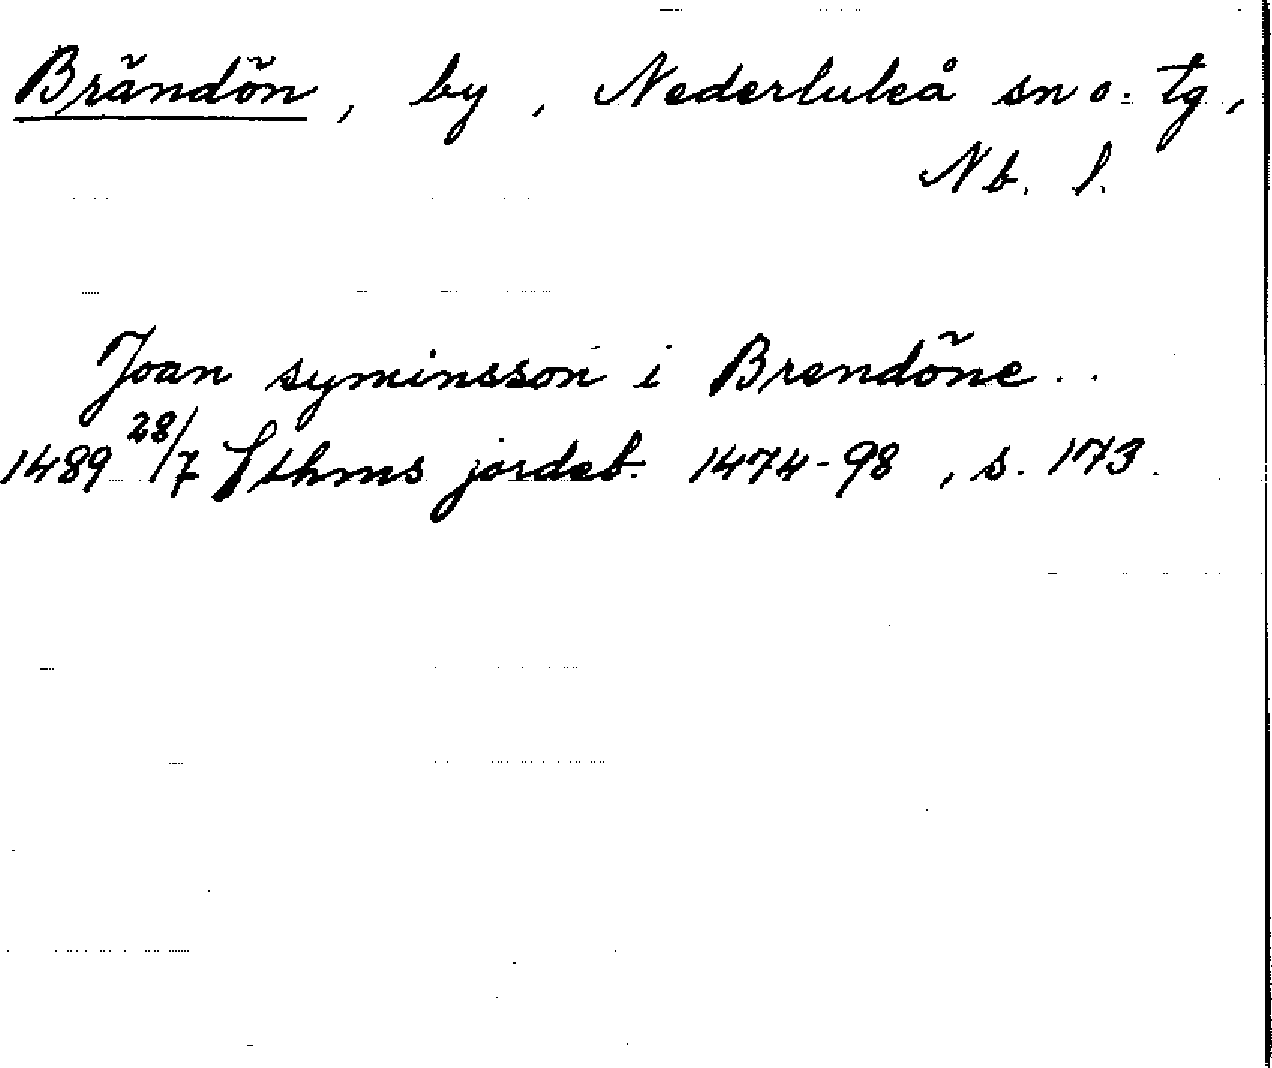 Brändön, by, Nederluleå sn o. tg,
Nb. l.
Joan syminsson i Brendöne..
1489 28/7 Sthms jordeb. 1474-98, s. 173.